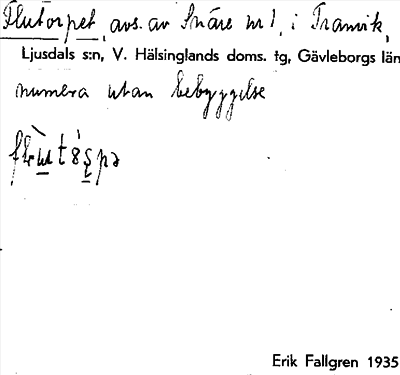 Flutorpet, avs. av Snåre nr 1, i Tranvik,
Ljusdals s:n, V. Hälsinglands doms. tg, Gävleborgs län
numera utan bebyggelse
Erik Fallgren 1935